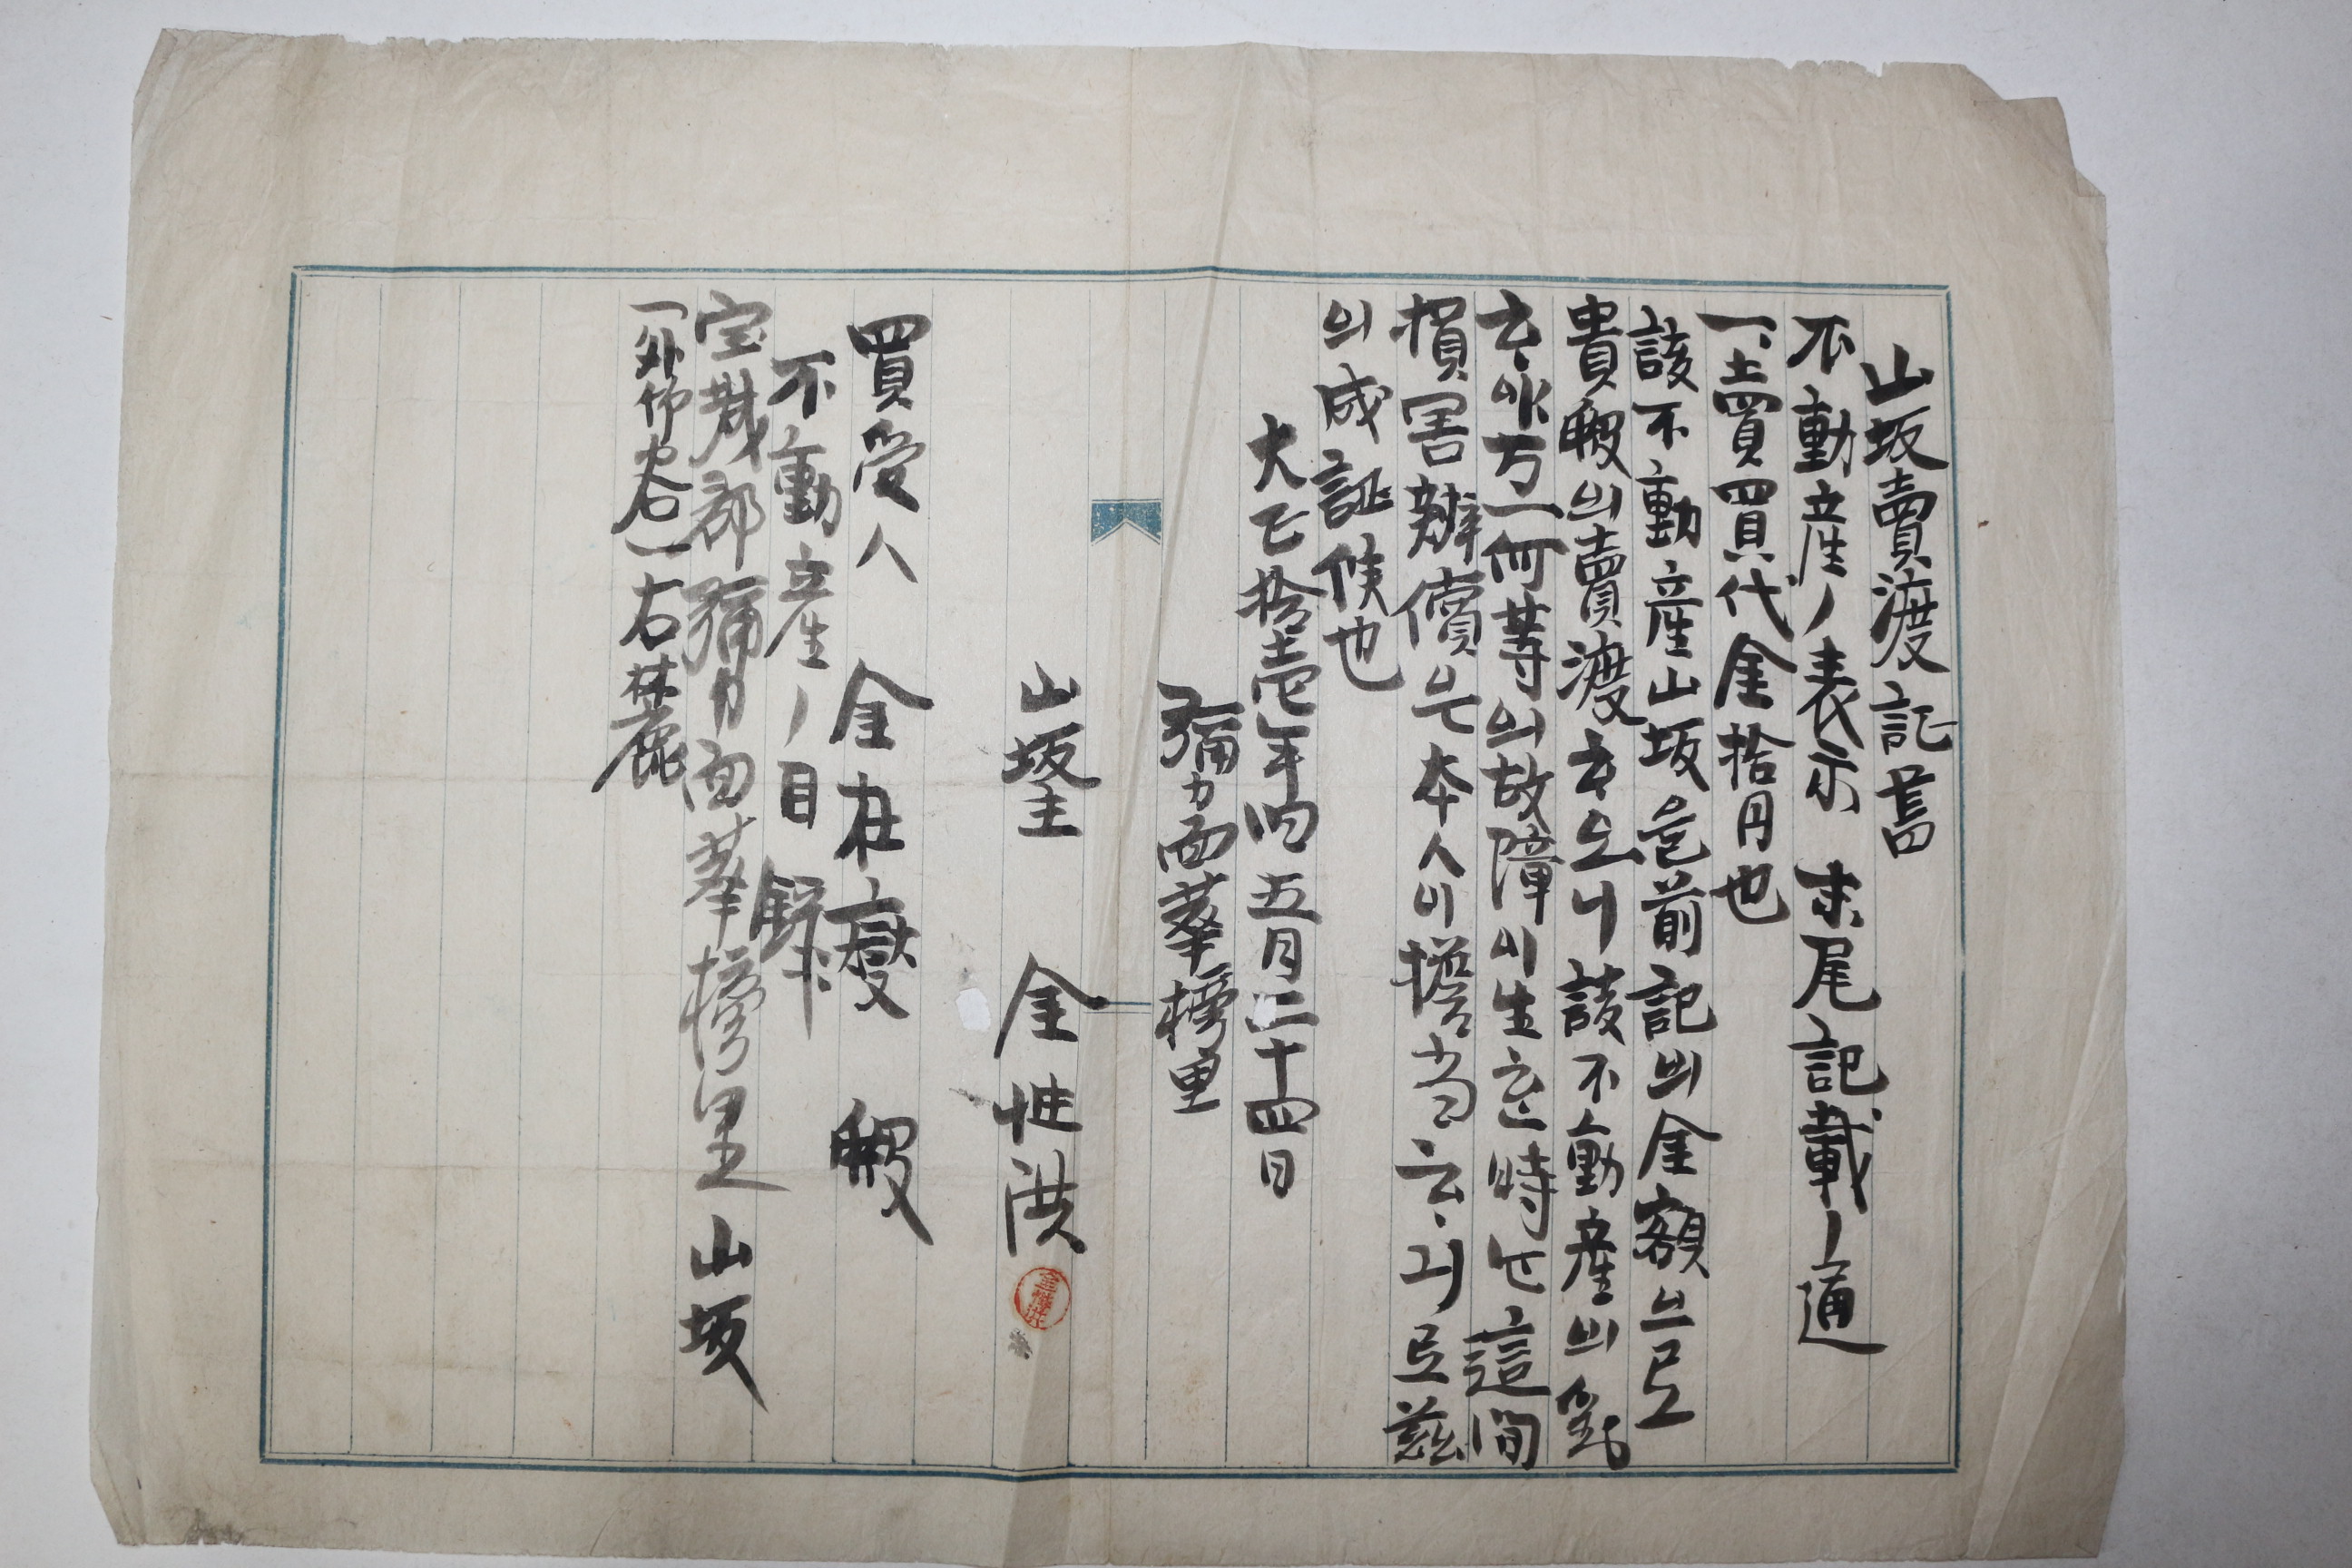 山坂賣渡記書
不動産ノ表示 末尾記載ノ通
一、土賣買代金拾円也
該不動産山坂을前記의金額으로
貴殿의賣渡하오니該不動産의對
하야万一何等의故障이生한時는這間
損害辨償은本人이擔当하기로玆
의成証候也
大正拾壱年四五月二十四日
彌力面華榜里
山坂主 金性洪
買受人 金在 殿
不動産ノ目録
宝城郡彌力面華榜里山坂
谷一右麓